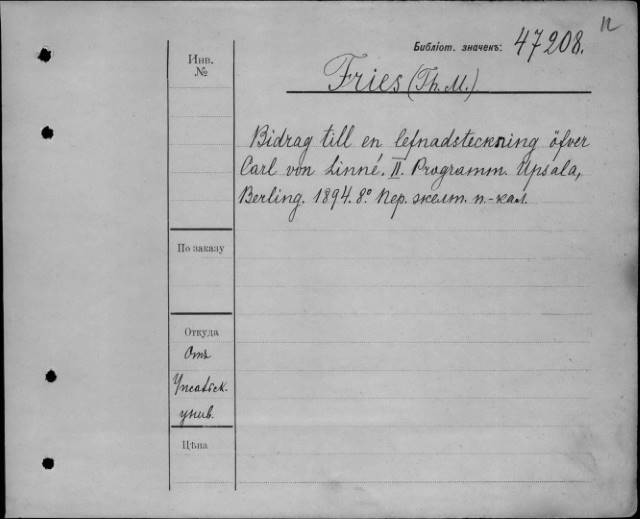 п
Библіот. значекъ: 47208.
Инв.
№
Fries (Th. M.)
Bidrag till en lefnadsteckning öfver
Carl von Linné. II. Programm. Upsala,
Berling. 1894. 8.º Пер. желт. п.-кал.
По заказу
Откуда
Отъ
Упсальск.
унив.
Цѣна